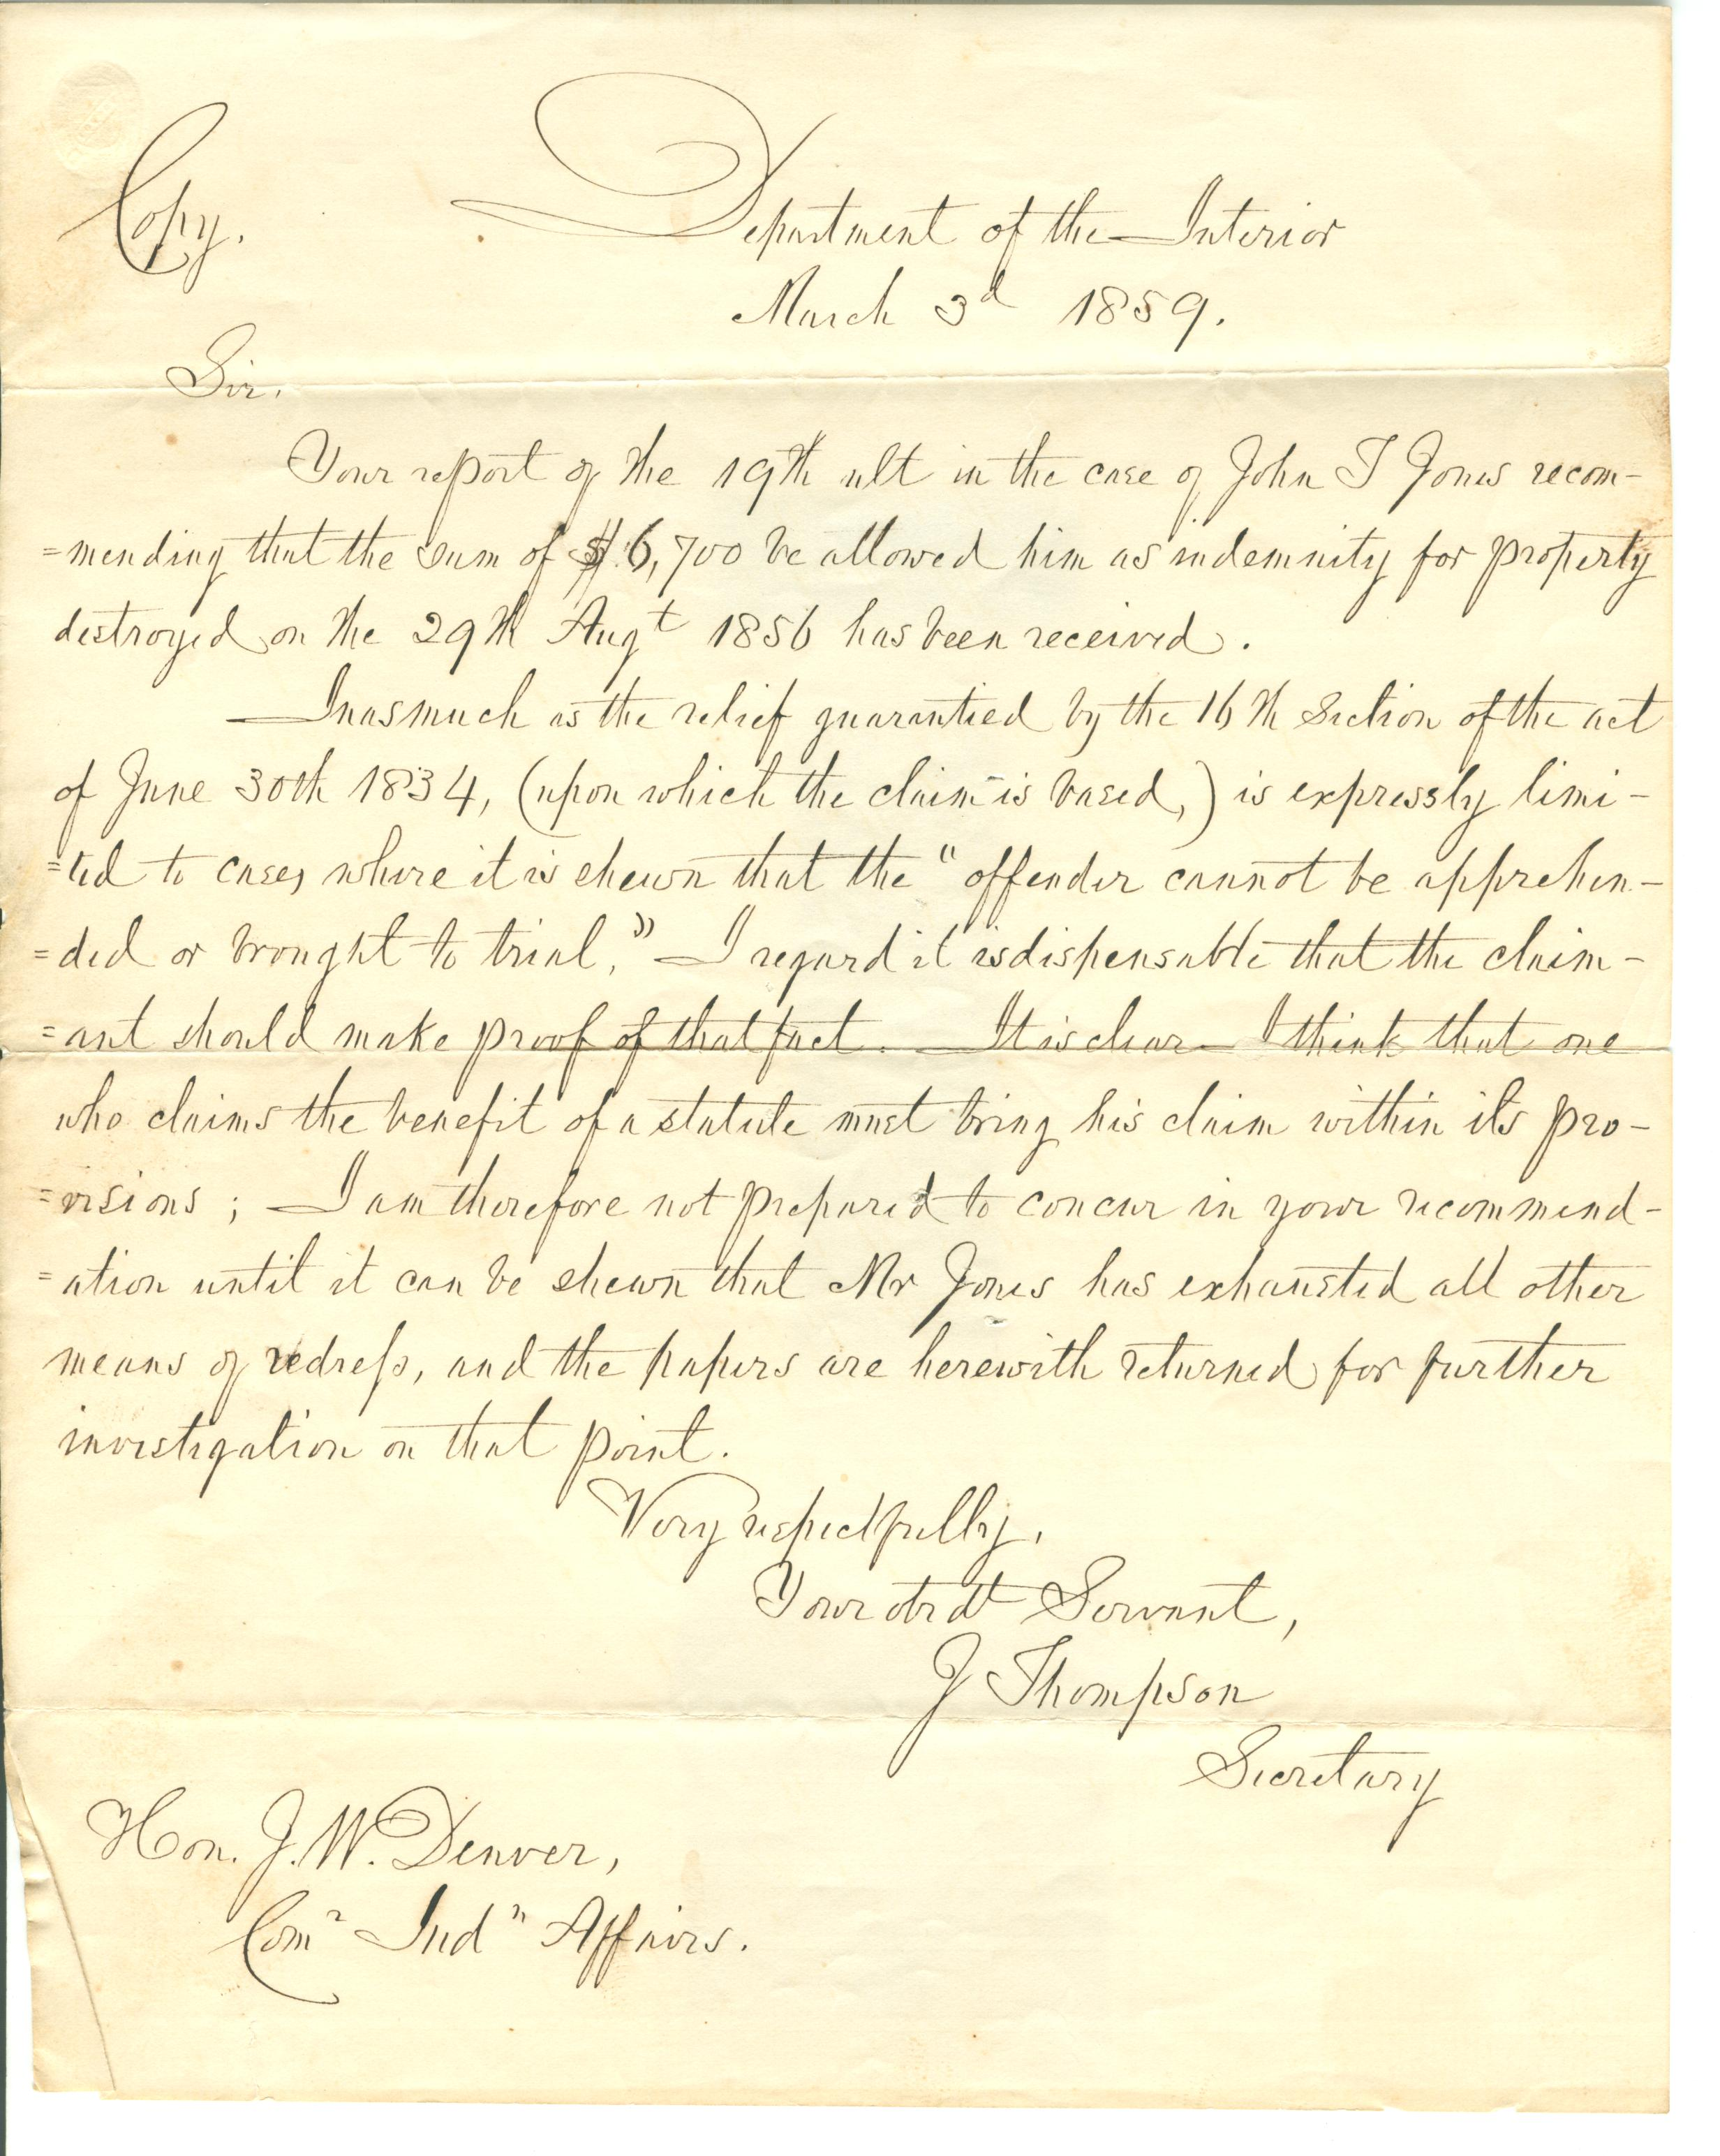 Copy.
Department of the Interior
March 3d 1859.
Sir.
Your report of the 19th ult in the case of John T Jones recom-
=mending that the sum of $6,700 be allowed him as indemnity for property
destroyed on the 29th Augt 1856 has been received.
Inasmuch as the relief guarantied by the 16th Section of the act
of June 30th 1834, (upon which the claim is based,) is expressly limi-
=ted to cases where it is shewn that the "offender cannot be apprehen-
=ded or brought to trial," I regard it isdispensable that the claim-
=ant should make proof of that fact. It is clear I think that one
who claims the benefit of a statute must bring his claim within its pro-
=visions; I am therefore not prepared to concur in your recommend-
=ation until it can be shewn that Mr Jones has exhausted all other
means of redress, and the papers are herewith returned for further
investigation on that point.
Very respectfully,
Your obdt Servant,
J Thompson
Secretary
Hon. J. W. Denver,
Comr Indn Affairs.